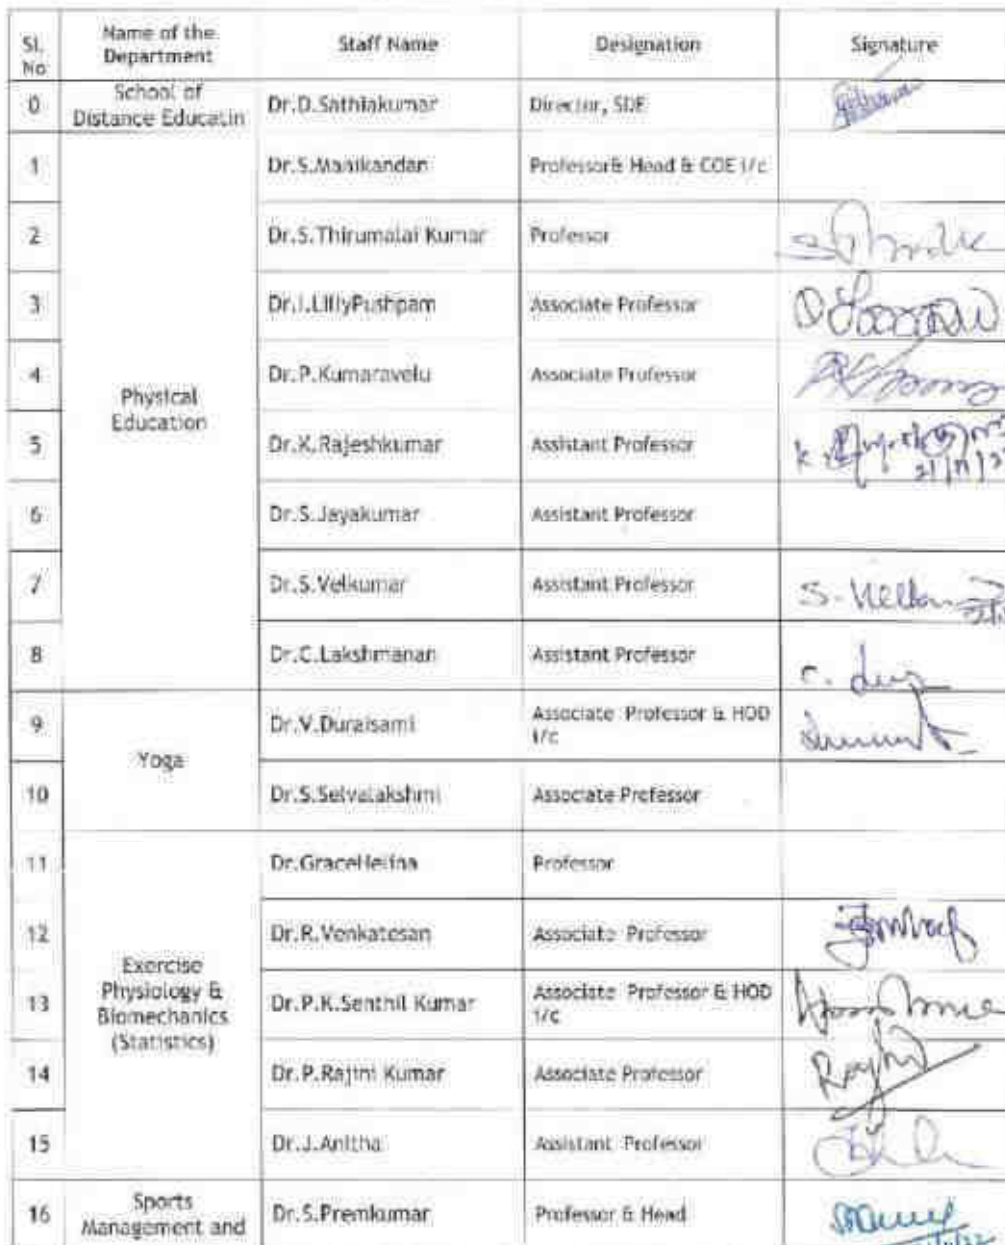 Sl. No Name of the Department Staff Name Designation Signature
0 School of Distance Educatin Dr.D.Sathiakumar Director, SDE
1 Physical Education Dr.S.Manikandan Professor& Head & COE i/c
2 Dr.S.Thirumalai Kumar Professor
3 Dr.I.LillyPushpam Associate Professor
4 Dr.P.Kumaravelu Associate Professor
5 Dr.K.Rajeshkumar Assistant Professor
6 Dr.S.Jayakumar Assistant Professor
7 Dr.S.Velkumar Assistant Professor
8 Dr.C.Lakshmanan Assistant Professor
9 Yoga Dr.V.Duraisami Associate Professor & HOD i/c
10 Dr.S.Selvalakshmi Associate Professor
11 Exercise Physiology & Biomechanics (Statistics) Dr.GraceHelina Professor
12 Dr.R.Venkatesan Associate Professor
13 Dr.P.K.Senthil Kumar Associate Professor & HOD i/c
14 Dr.P.Rajini Kumar Associate Professor
15 Dr.J.Anitha Assistant Professor
16 Sports Management and Dr.S.Premkumar Professor & Head